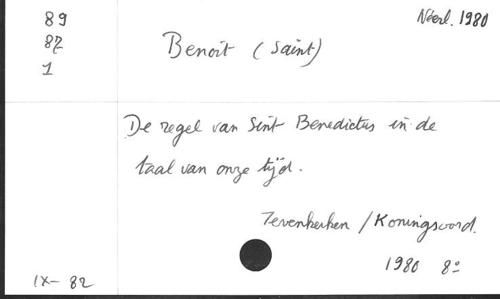 89
87
1
Néerl. 1980
Benoit (Saint)
De regel van Sint Benedictus in de
taal van onze tijd.
Zevenkerken / Koningsoord.
1980 8°
IX- 82